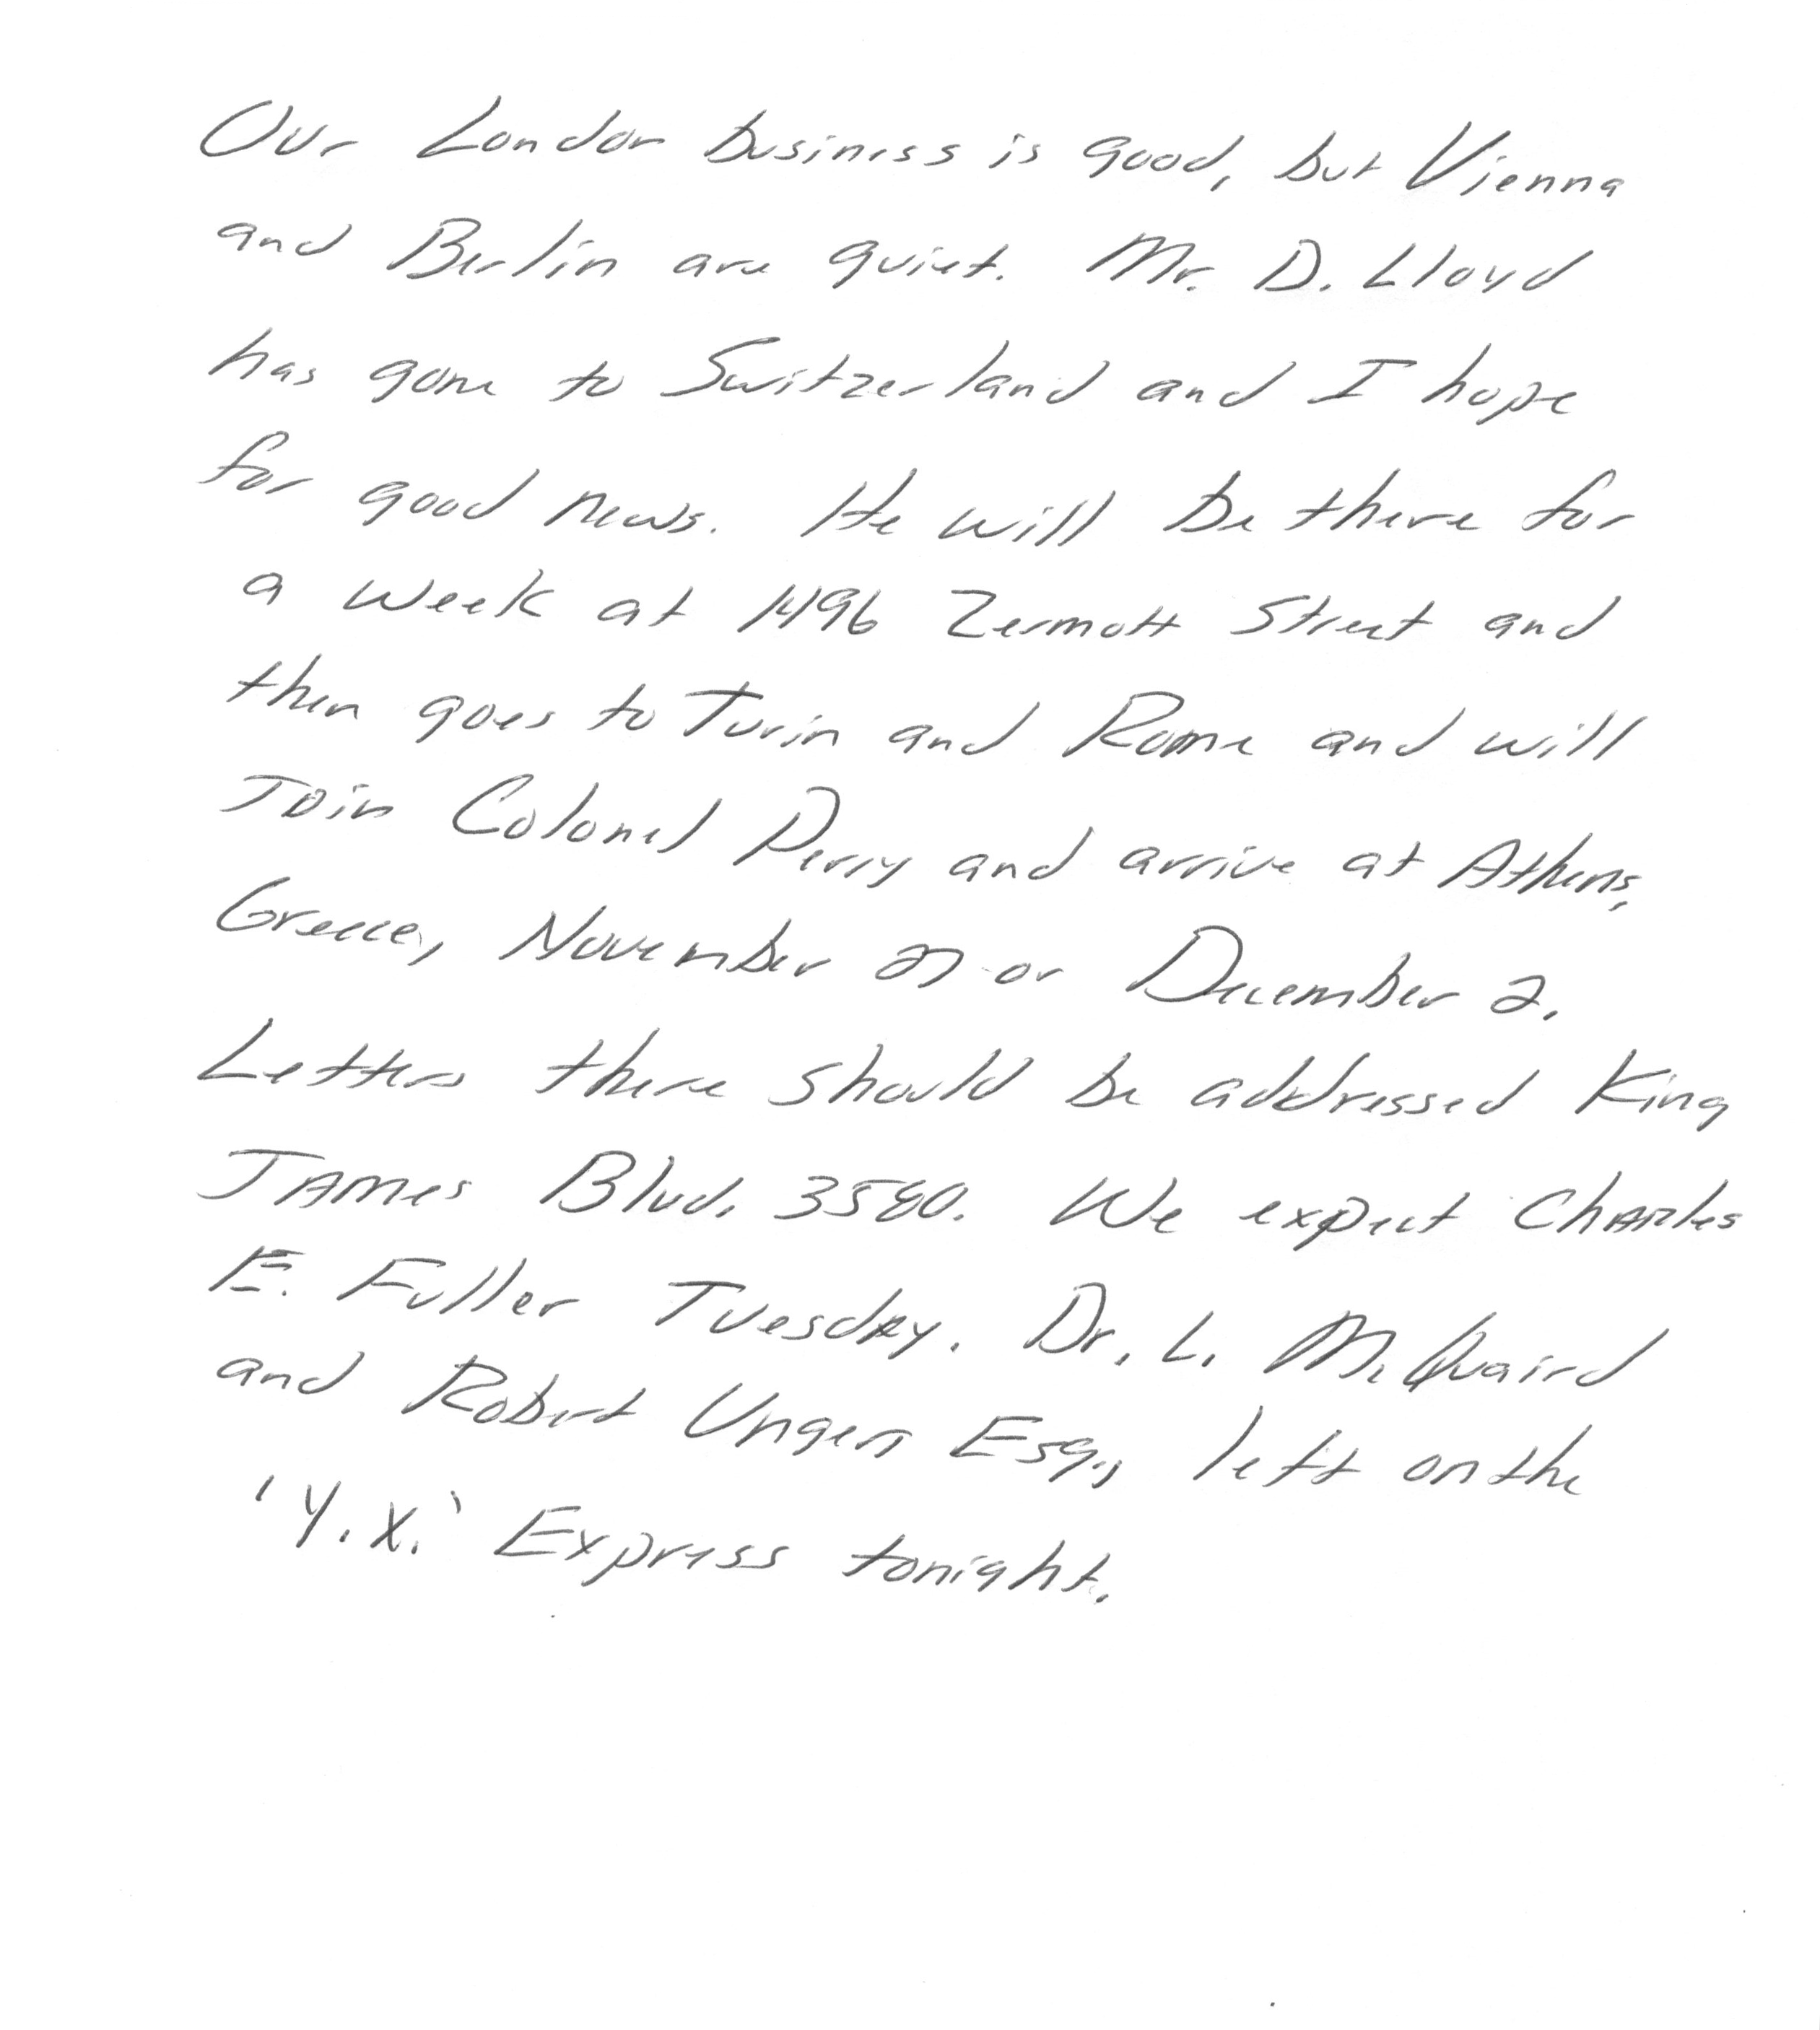 Our London business is good, but Vienna
and Berlin are quiet. Mr. D. Lloyd
has gone to Switzerland and I hope
for good news. He will be there for
a week at 1496 Zermott Street and
then goes to Turin and Rome and will
Join Colonel Perry and arrive at Athens,
Greece, November 27 or December 2.
Letters there should be addressed King
James Blvd. 3580. We expect Charles
E. Fuller Tuesday. Dr. L. McQuaird
and Robert Unger, Esq., left on the
'Y.X.' Express tonight.